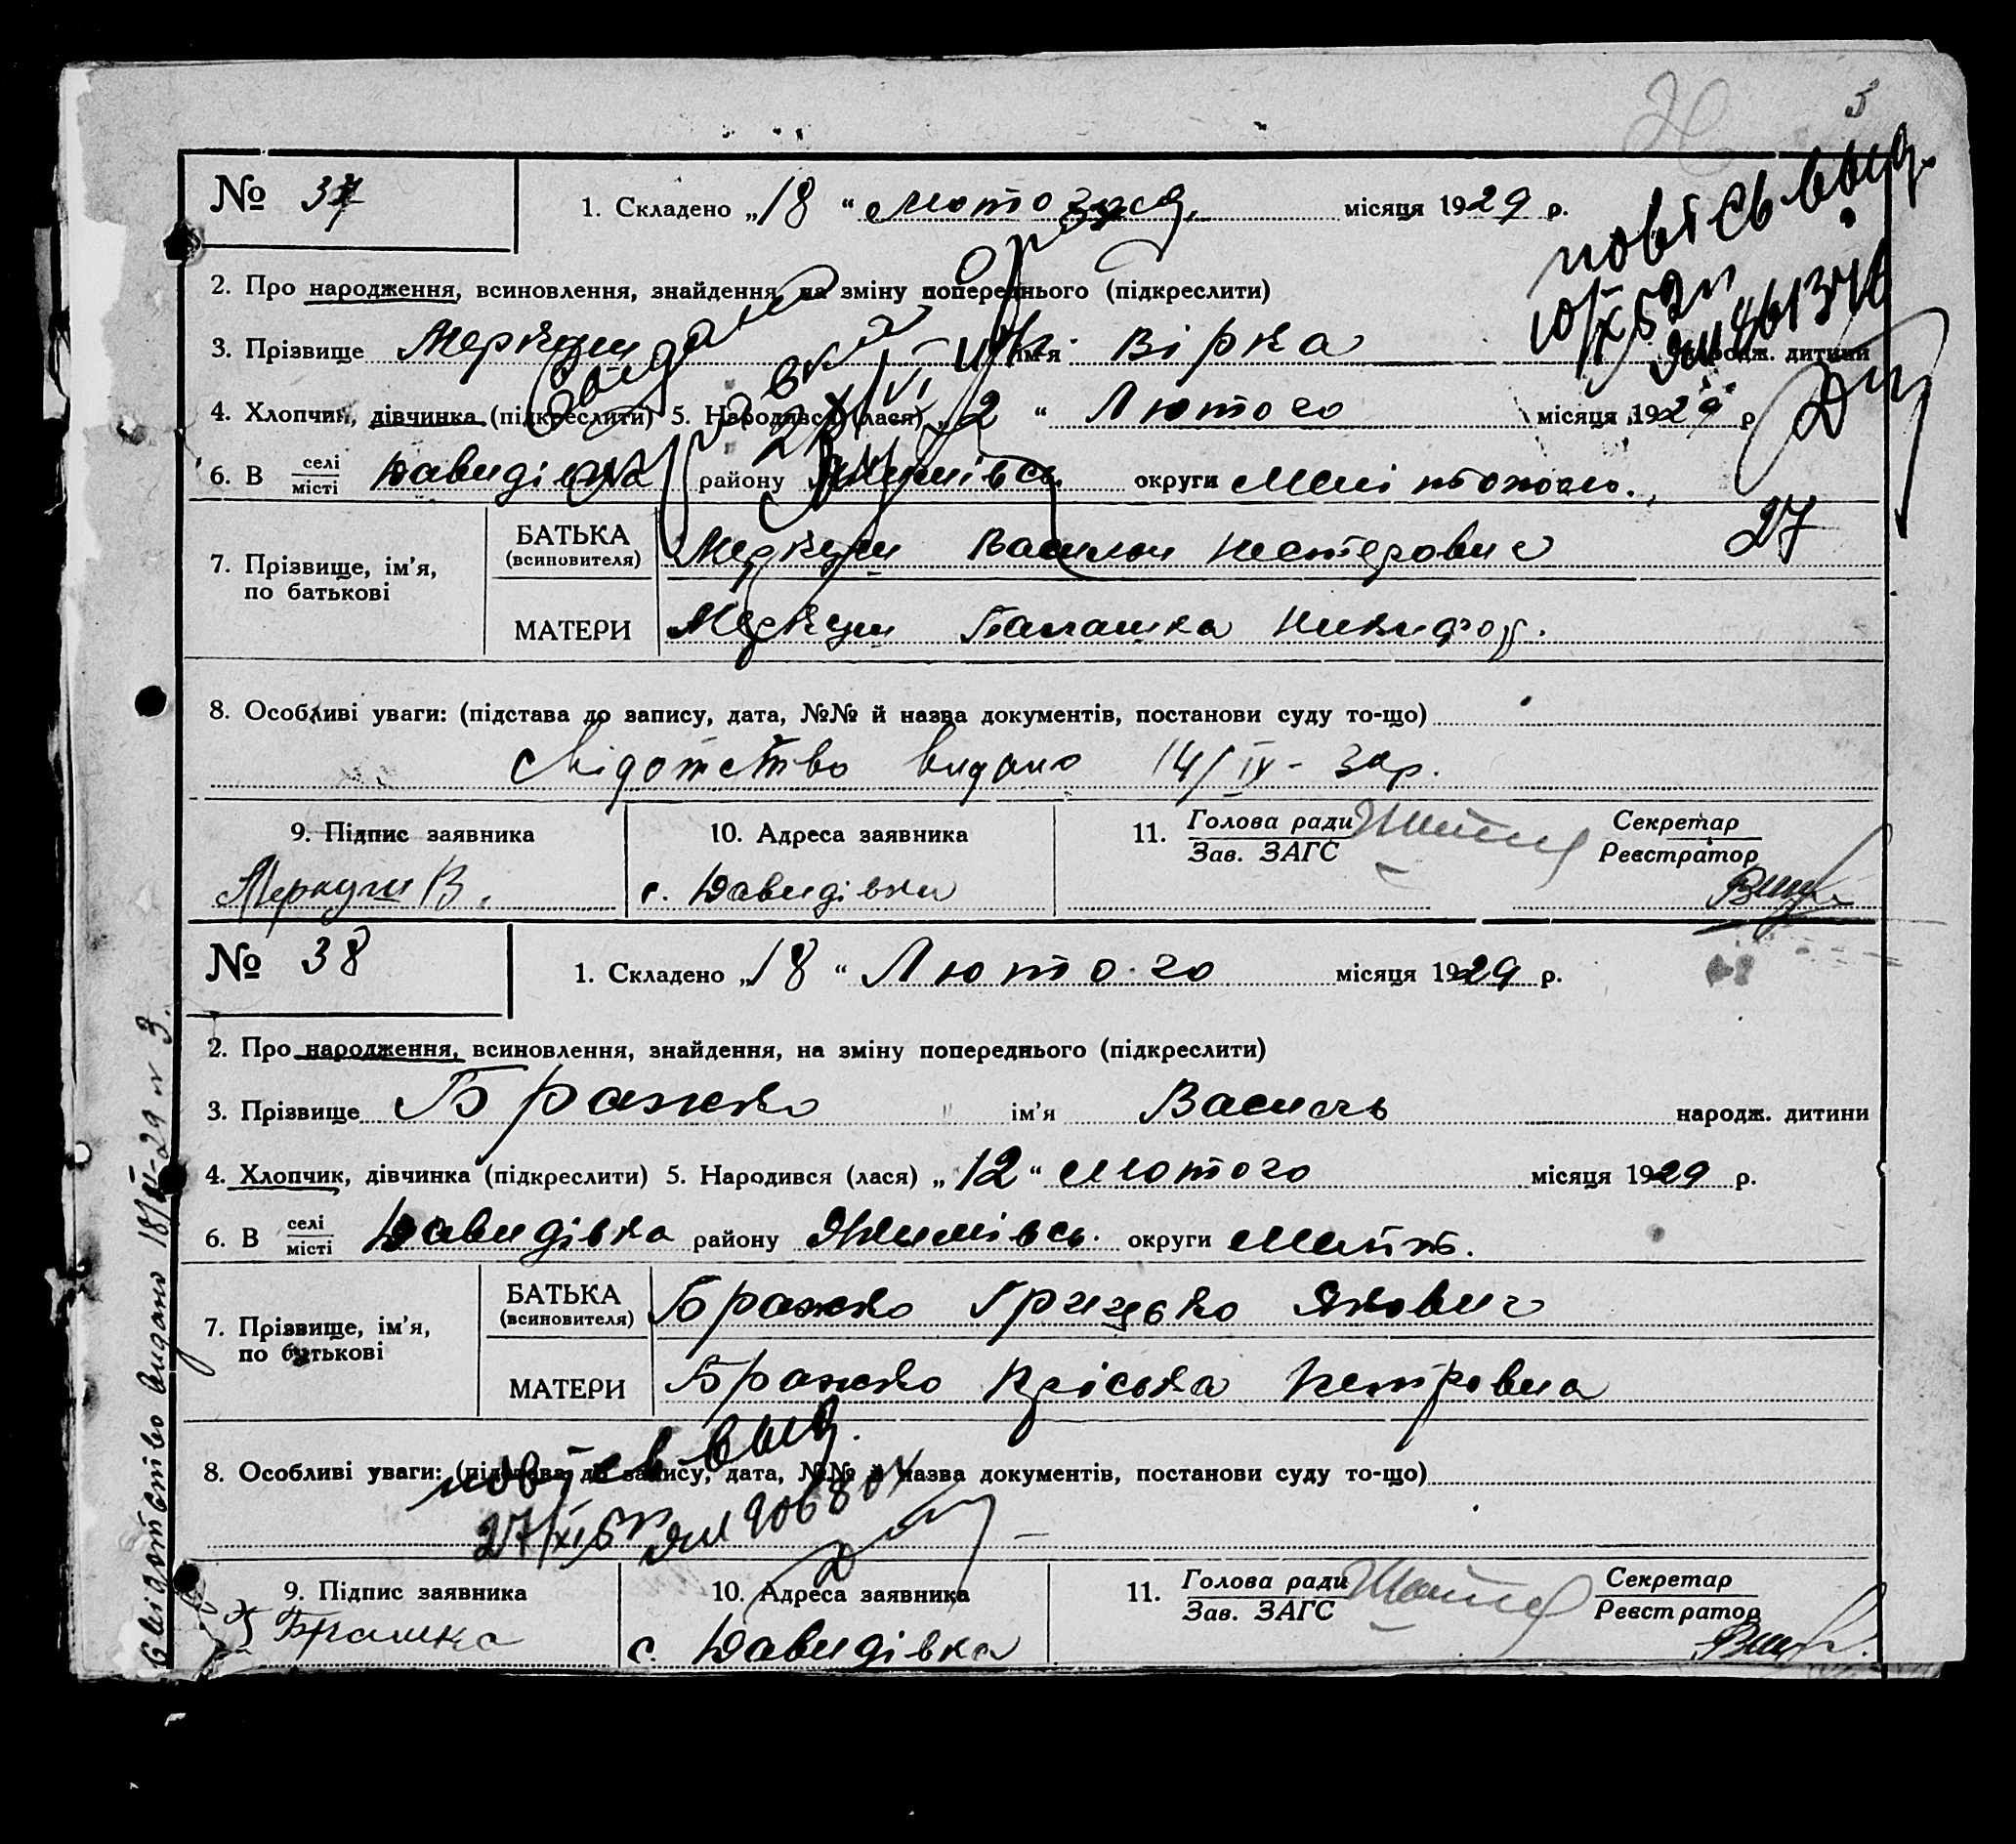 3
№ 37 1. Складено „18“ Лютого місяця 1929 р.
повт св выд.
2. Про народження, всиновлення, знайдення, на зміну попереднього (підкреслити)
10/X 52 г
3. Прізвище Меркуш ім'я Вірка народж. дитини
выдана справка
4. Хлопчик, дівчинка (підкреслити) 5. Народився (лася) „2“ Лютого місяця 1929 р
6. В селі/місті Давидівка району Якимівсь. округи Меліт
27
7. Прізвище, ім'я, по батькові
БАТЬКА (всиновителя) Меркуш Нестерович
МАТЕРИ Меркуш Палашка Никифор.
8. Особливі уваги: (підстава до запису, дата, №№ й назва документів, постанови суду то-що)
Свідотство видано 14/IV-
9. Підпис заявника 10. Адреса заявника 11. Голова ради/Зав. ЗАГС Секретар/Реєстратор
В. с. Давидівка
№ 38 1. Складено „18“ Лютого місяця 1929 р.
2. Про народження, всиновлення, знайдення, на зміну попереднього (підкреслити)
3. Прізвище Бражко ім'я Василь народж. дитини
4. Хлопчик, дівчинка (підкреслити) 5. Народився (лася) „12“ Лютого місяця 1929 р.
6. В селі/місті Давидівка району Якимівсь. округи Меліт.
7. Прізвище, ім'я, по батькові
БАТЬКА (всиновителя) Бражко Грицько Якович
МАТЕРИ Бражко Пріська Петровна
повт св выд.
8. Особливі уваги: (підстава до запису, дата, №№ й назва документів, постанови суду то-що)
27/XI
9. Підпис заявника 10. Адреса заявника 11. Голова ради/Зав. ЗАГС Секретар/Реєстратор
с. Давидівка
Свідотство видано 18/II-29 г